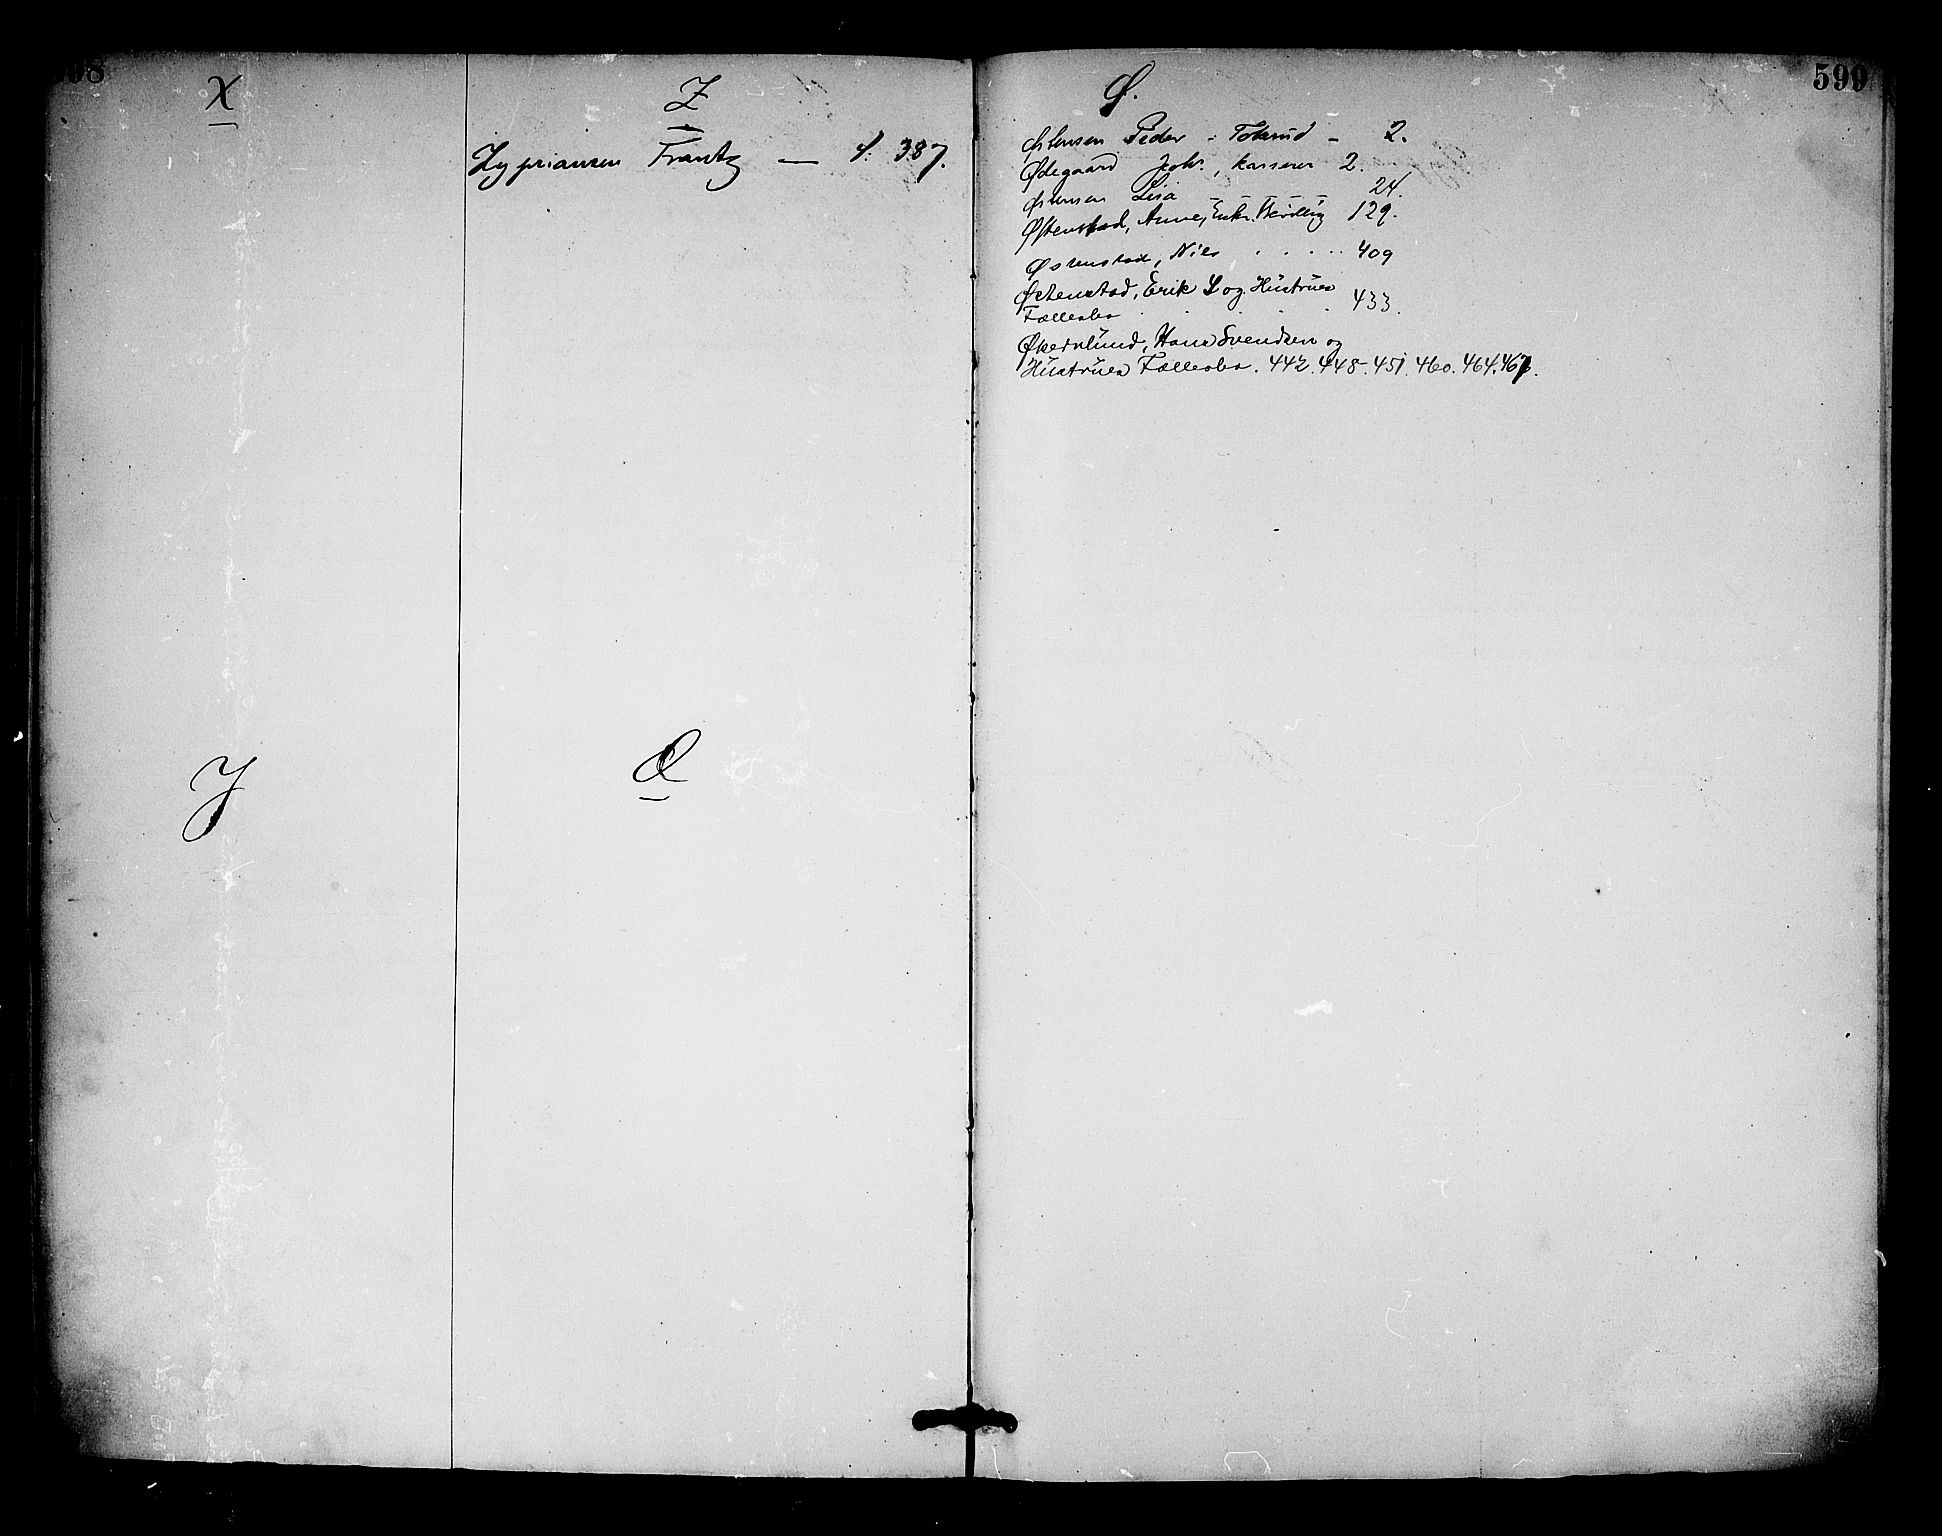 X
Z
Zypriansen Frantz — s. 387.
Y
Æ
Ø.
599
Østensen Peder - Tokerud - 2.
Ødegaard Joh., kasserer 2.
Østensen Lisa - - - - 24.
Østenstad, Anne, Enke. 129.
Østenstad, Nils . . . . . 409
Østenstad, Erik L og Hustrues
Fællesbo . . . . . 433.
Økernlund, Hans Svendsen og
Hustrues Fællesbo. 442. 448. 451. 460. 464. 467.